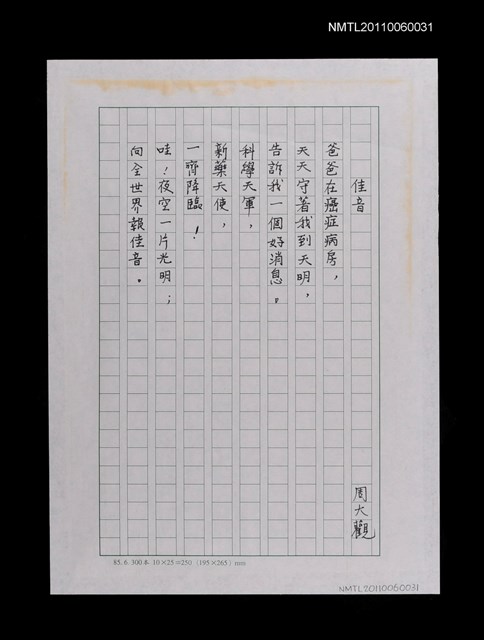 NMTL20110060031
佳音
周大觀
爸爸在癌症病房，
天天守著我到天明，
告訴我一個好消息。
科學天軍，
新藥天使，
一齊降臨！
哇！夜空一片光明；
向全世界報佳音。
85. 6. 300本 10×25=250 (195×265) mm
NMTL20110060031